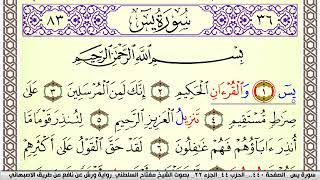 ٣٦ سُورَةُ يسٓ ٨٣
بِسْمِ اللَّهِ الرَّحْمَٰنِ الرَّحِيمِ
يسٓ ١ وَالْقُرْءَانِ الْحَكِيمِ ٢ إِنَّكَ لَمِنَ الْمُرْسَلِينَ ٣ عَلَىٰ
صِرَٰطٍ مُّسْتَقِيمٍ ٤ تَنزِيلُ الْعَزِيزِ الرَّحِيمِ ٥ لِتُنذِرَ قَوْمًا مَّا
أُنذِرَ ءَابَآؤُهُمْ فَهُمْ غَٰفِلُونَ ٦ لَقَدْ حَقَّ الْقَوْلُ عَلَىٰ أَكْثَرِهِمْ
سورة يس الصفحة ٤٤٠، الجزء ٢٢ بصوت الشيخ مفتاح السلطني رواية ورش عن نافع من طريق الاصبهاني